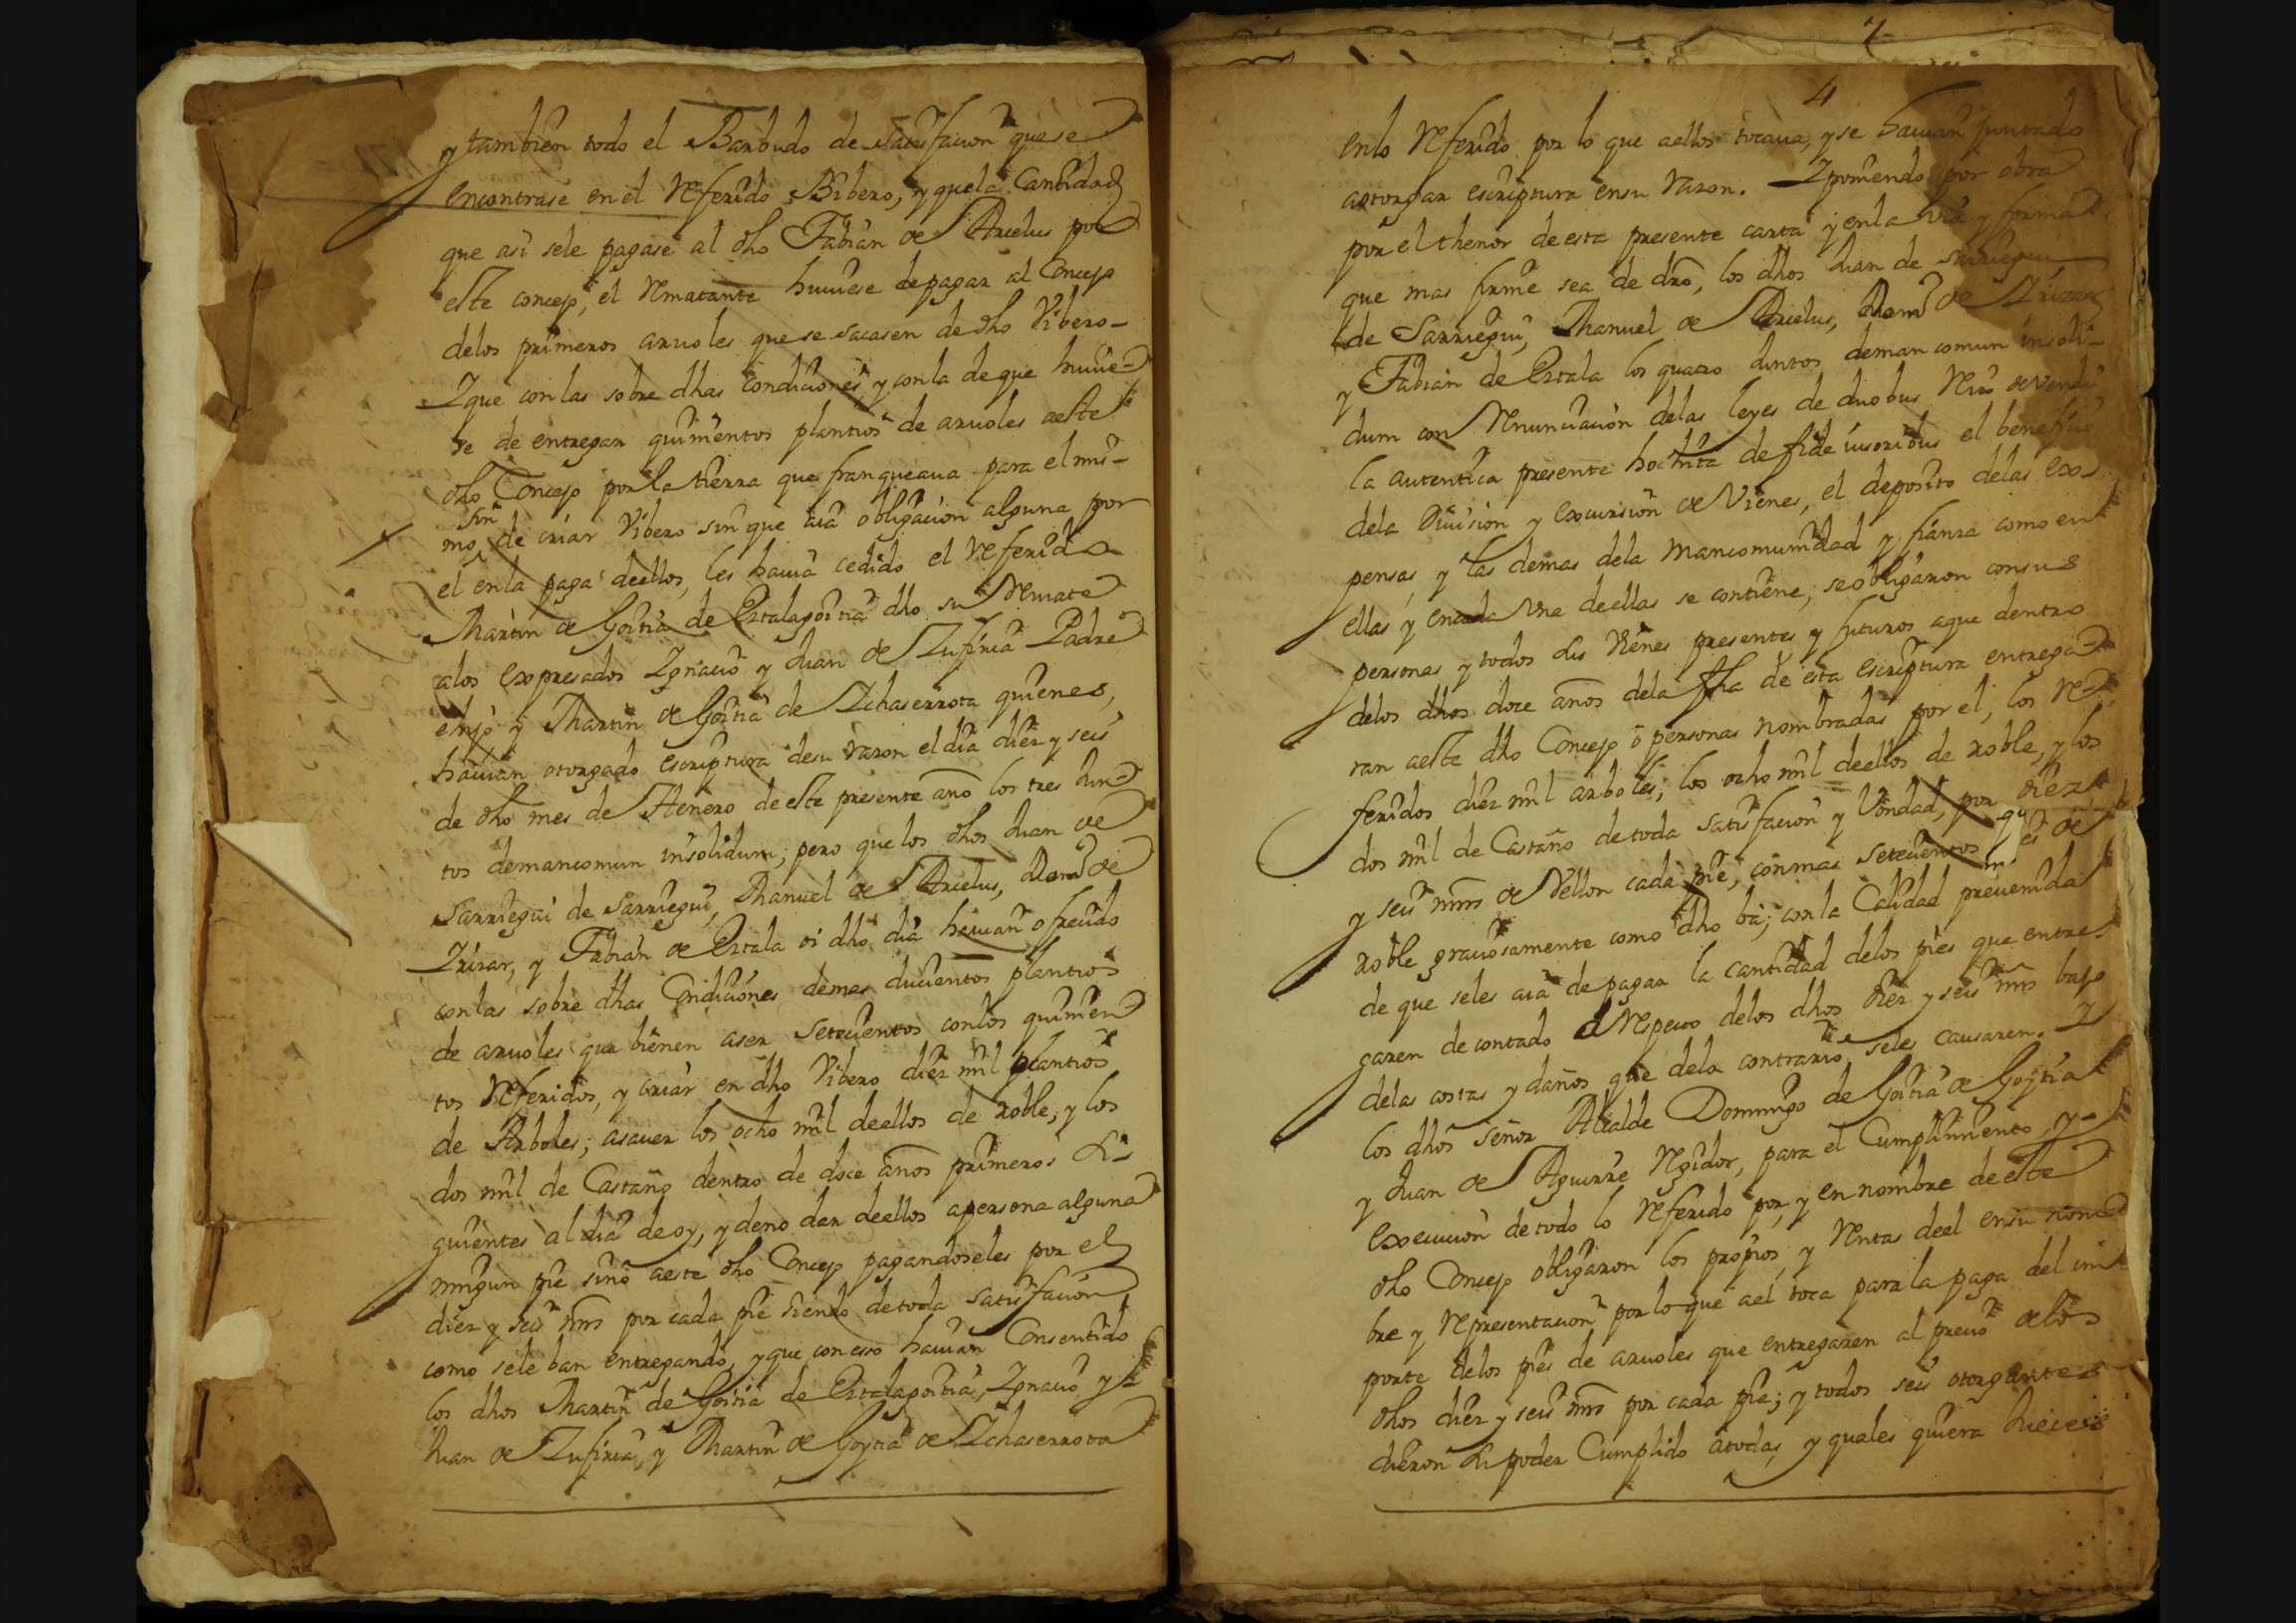 y tambien todo el Barbudo de satisfacion que se
encontrase en el referido Bibero, y que la Cantidad
que asi se le pagase al dho Fabian de Arcelus por
este concejo, el rematante huuiese de pagar al Concejo
delos primeros aruoles que se sacasen de dho Vibero-
Y que con las sobre dhas condiciones, y con la de que huuie-
se de entregar quinientos plantios de aruoles a este
dho Concejo por la tierra que franqueaua para el mis-
mo fin de criar Vibero sin que aia obligacion alguna por
el en la paga deellos, les hauia cedido el referido
Martin de Goitia de Estalagoitia dho su remate
alos expresados Ygnacio y Juan de Zufiria Padre
e hijo y Martin de Goitia de Echaserrota quienes,
hauian otorgado escriptura desu razon el dia diez y seis
de dho mes de Henero deeste presente año los tres Jun-
tos demancomun insolidum; pero que los dhos Juan de
Sarriegui de Sarriegui, Manuel de Arcelus, de
Yrizar, y Fabian de Estala oi dho dia hauian ofrecido
con las sobre dhas Condiciones demas ducientos plantios
de aruoles que bienen aser setecientos conlos quinien
tos referidos, y criar en dho Vibero diez mil plantios
de Arboles; asauer los ocho mil deellos de roble, y los
dos mil de Castaño dentro de doce años primeros si-
guientes al dia de oy, y deno dar deellos apersona alguna
ningun pie sino aeste dho Concejo pagandoseles por el
diez y seis mrs por cada pie siendo detoda satisfacion
como sele ban entregando, y que con esso hauian Consentido
los dhos Martin de Goitia de Estalagoitia, Ygnacio, y
Juan de Zufiria, y Martin de Goytia de Echaserrota
7
4
enlo referido por lo que aellos tocaua, y se hauian juntado
aotorgar escriptura ensu razon. Y poniendo por obra
por el thenor de esta presente carta y enla via y forma
que mas firme sea de dro, los dhos Juan de Sarriegui
de Sarriegui, Manuel de Arcelus, de Yrizar
y Fabian de Estala los quatro Juntos demancomun insoli-
dum con renunciacion delas leyes de duobus reis devendi
la autentica presente hoc hita de fide iusoribus el beneficio
dela Diuision y excursion de Vienes, el deposito delas ex-
pensas, y las demas dela mancomunidad y fianza como en
ellas y encada vna deellas se contiene, se obligaron consus
personas y todos sus Vienes presentes y futuros aque dentro
delos dhos doce años dela fha de esta escriptura entrega-
ran aeste dho Concejo o personas nombradas por el, los re-
feridos diez mil arboles; los ocho mil deellos de roble, y los
dos mil de Castaño detoda satisfacion y Vondad, por diez
y seis mrs de Vellon cada pie, con mas setecientos pies de
roble graciosamente como dho ba; con la Calidad preuenida
de que seles aia de pagar la cantidad delos pies que entre-
garen de contado al respecto delos dhos diez y seis mrs bajo
delas costas y daños que delo contrario seles causaren. Y
los dhos señor Alcalde Domingo de Goitia de Goytia
y Juan de Aguirre regidor, para el Cumplimiento, y
execucion detodo lo referido por, y en nombre de este
dho Concejo obligaron los propios, y rentas deel ensu nom-
bre y representacion por lo que ael toca para la paga del im-
porte delos pies de aruoles que entregaren al precio delos
dhos diez y seis mrs por cada pie; y todos seis otorgantes
dieron su poder Cumplido atodas, y quales quiera Jueces